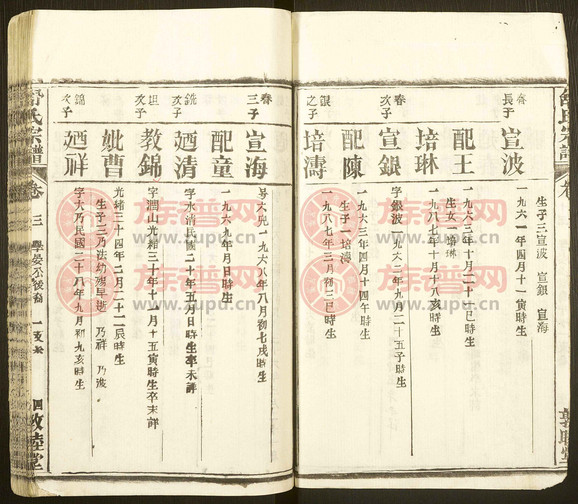 生子三 宣波 宣銀 宣海
春
長子
宣波
一九六一年四月十一寅時生
配王
一九六三年十月二十一巳時生
生女一培琳
培琳
一九八七年十月十八亥時生
春
次子
宣銀
字銀波一九六二年九月二十五子時生
配陳
一九六三年四月十四午時生
生子一培濤
銀
之子
培濤
一九八七年三月初三巳時生
春
三子
宣海
一九六八年八月初七戌時生
配童
一九六九年月日時生
銑
次子
廼清
字水清民國二十年五月日時生卒未詳
坦
次子
教錦
字潤山光緒三十年十一月十五寅時生卒未詳
妣曹
光緒三十四年二月二十二辰時生
生子三乃法幼殤早逝 乃祥 乃浚
錦
次子
廼祥
字大乃民國二十八年九月初九亥時生
氏宗譜
卷三
四
敦睦堂
族譜网
www.zupu.cn